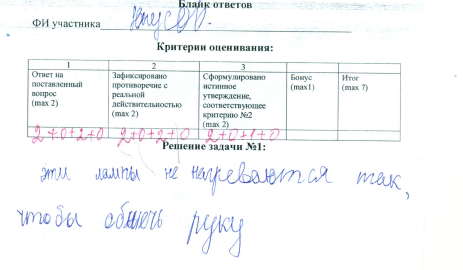 Бланк ответов
ФИ участника
Критерии оценивания:
1 2 3
Ответ на поставленный вопрос (max 2)
Зафиксировано противоречие с реальной действительностью (max 2)
Сформулировано истинное утверждение, соответствующее критерию №2 (max 2)
Бонус (max1)
Итог (max 7)
2+0+2+0 2+0+2+0 2+0+1+0
Решение задачи №1:
эти лампы не нагреваются так,
чтобы обжечь руку